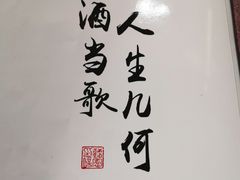 人生几何
酒当歌